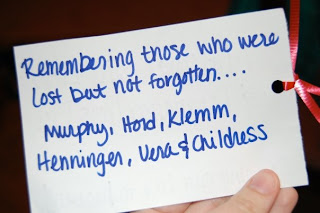 Remembering those who were
lost but not forgotten....
Murphy, Hord, Klemm,
Henninger, Vera & Childress